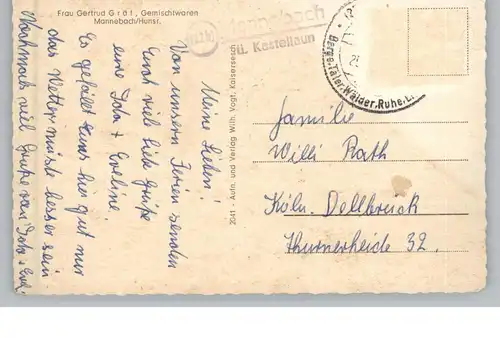 Frau Gertrud Gräf, Gemischtwaren
Mannebach/Hunsr.
Mannebach
ü. Kastellaun
Berge.Täler.Wälder.Ruhe.
Meine Lieben!
Von unseren Ferien senden
Euch viel liebe Grüße
eure Jola + Eveline.
Es gefällt uns hier gut nur
das Wetter müsste besser sein.
Nochmals viel Grüße von Jola + Evel.
2041 - Aufn. und Verlag Wilh. Vogt, Kaisersesch
Familie
Willi Rath
Köln-Dellbrück
Thurnerheide 32.